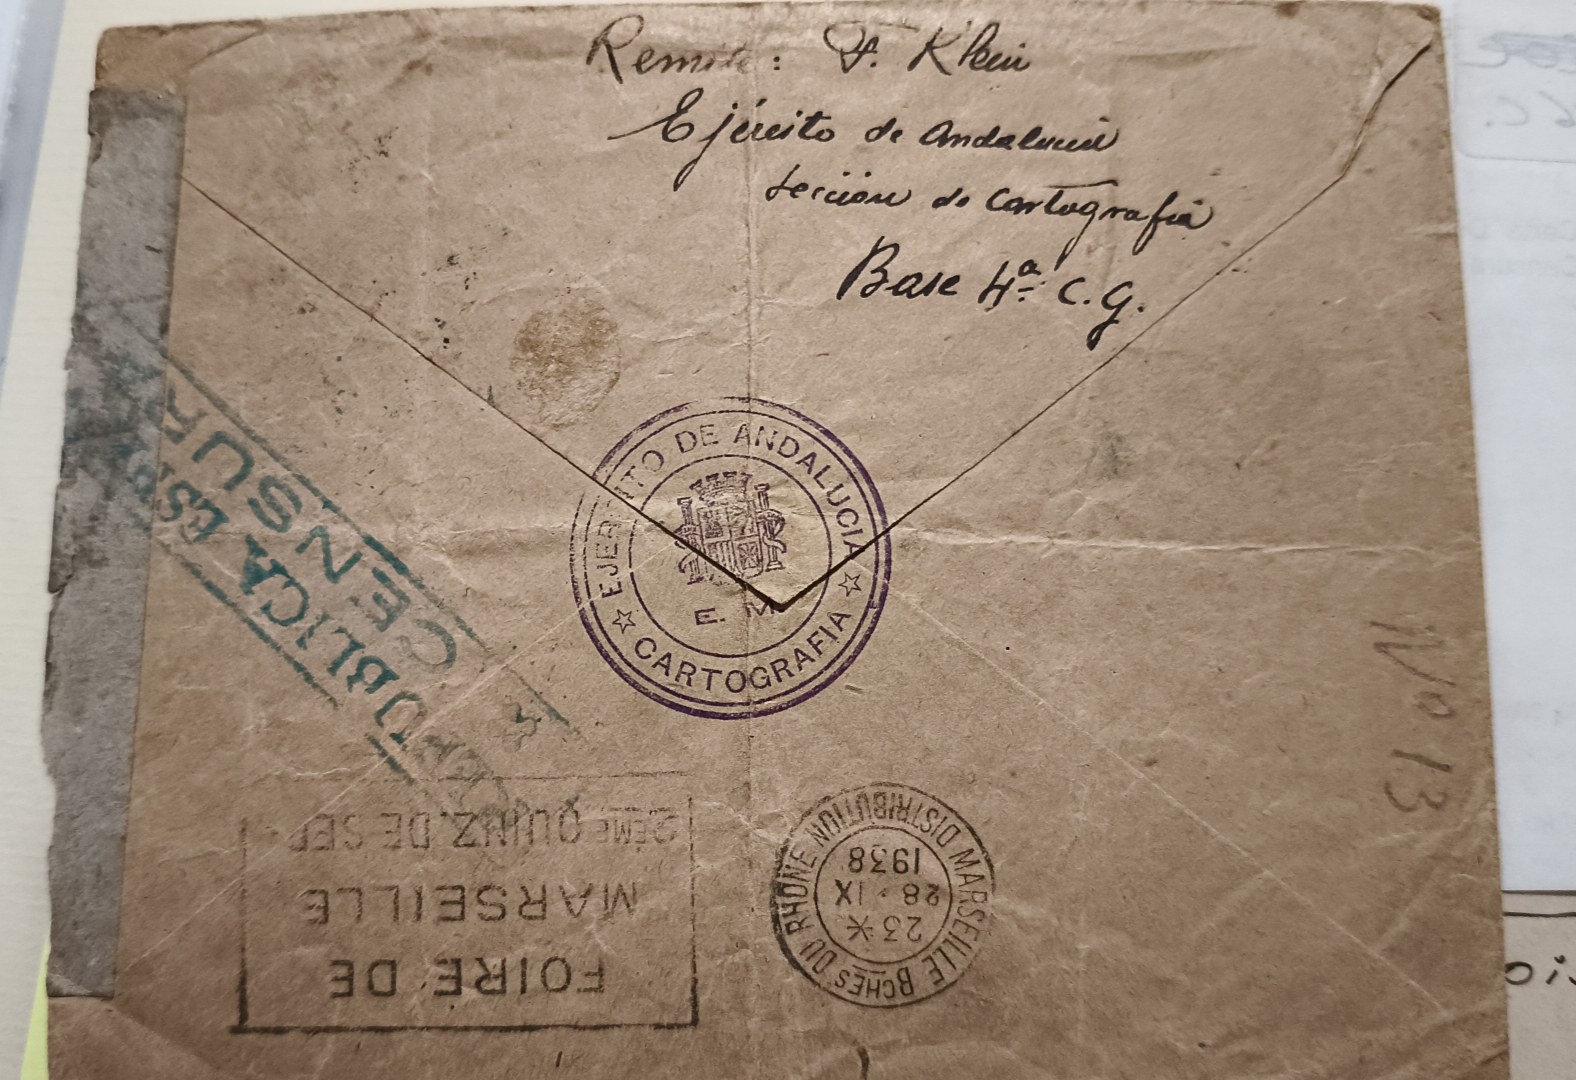 Remite: F. Klein
Ejército de Andalucía
Sección de Cartografía
Base 4ª C. G.
EJERCITO DE ANDALUCIA
E. M.
☆ CARTOGRAFIA ☆
REPUBLICA ESP
CENSUR
MARSEILLE DISTRIBUTION
Bches DU RHONE
23 *
28 · IX
1938
FOIRE DE
MARSEILLE
2ÈME QUINZ. DE SEP
No 13